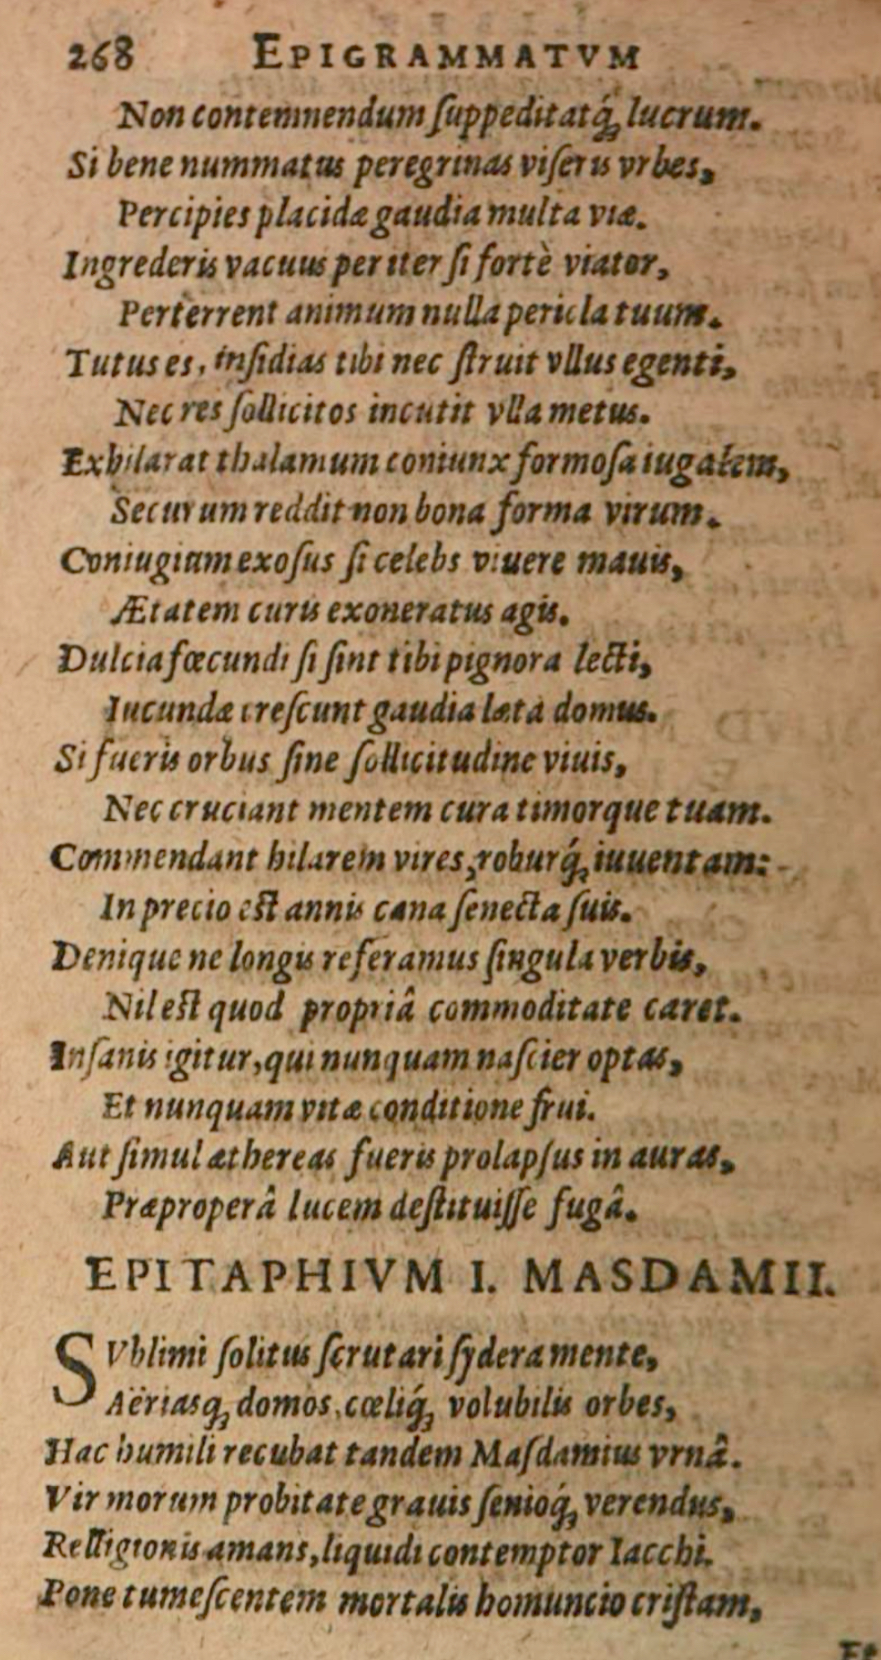 268 EPIGRAMMATVM
Non contemnendum ſuppeditatq́; lucrum.
Si bene nummatus peregrinas viſeris vrbes,
Percipies placidæ gaudia multa viæ.
Ingrederis vacuus per iter ſi fortè viator,
Perterrent animum nulla pericla tuum.
Tutus es, inſidias tibi nec ſtruit vllus egenti,
Nec res ſollicitos incutit vlla metus.
Exhilarat thalamum coniunx formoſa iugalem,
Securum reddit non bona forma virum.
Coniugium exoſus ſi celebs viuere mauis,
Ætatem curis exoneratus agis.
Dulcia fœcundi ſi ſint tibi pignora lecti,
Iucundæ creſcunt gaudia læta domus.
Si fueris orbus ſine ſollicitudine viuis,
Nec cruciant mentem cura timorque tuam.
Commendant hilarem vires, roburq́; iuuentam:
In precio eſt annis cana ſenecta ſuis.
Denique ne longis referamus ſingula verbis,
Nil eſt quod propriâ commoditate caret.
Inſanis igitur, qui nunquam naſcier optas,
Et nunquam vitæ conditione frui.
Aut ſimul æthereas fueris prolapſus in auras,
Præproperâ lucem deſtituiſſe fugâ.
EPITAPHIVM I. MASDAMII.
SVblimi ſolitus ſcrutari ſydera mente,
Aëriasq; domos, cœliq́; volubilis orbes,
Hac humili recubat tandem Maſdamius vrnâ.
Vir morum probitate grauis ſenioq́; verendus,
Relligionis amans, liquidi contemptor Iacchi.
Pone tumeſcentem mortalis homuncio criſtam,
Et